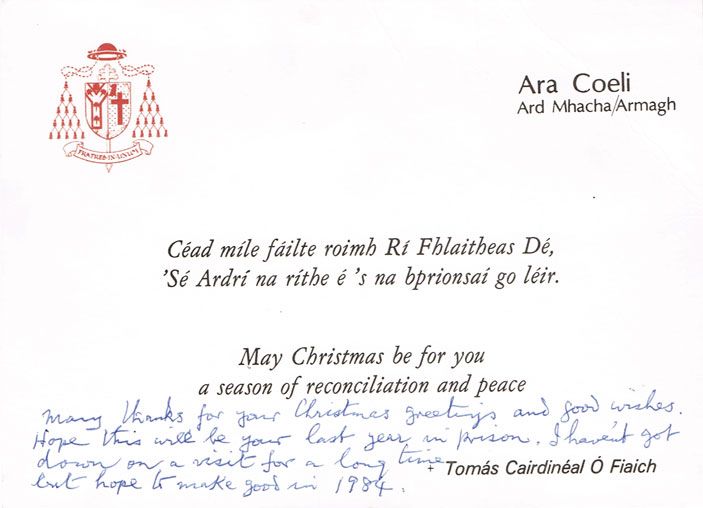 Ara Coeli
Ard Mhacha/Armagh
FRATRES IN UNUM
Céad míle fáilte roimh Rí Fhlaitheas Dé,
'Sé Ardrí na ríthe é 's na bprionsaí go léir.
May Christmas be for you
a season of reconciliation and peace
Many thanks for your Christmas greetings and good wishes.
Hope this will be your last year in prison. I haven't got
down on a visit for a long time
but hope to make good in 1984.
+ Tomás Cairdinéal Ó Fiaich